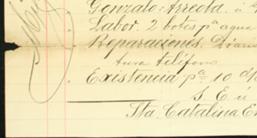 Gonzalo Arreola. á
Labor. 2 botes pa agua
Reparaciones. Diam
tura teléfono
Existencia pa 10 d
S. E. ú
Sta Catalina E